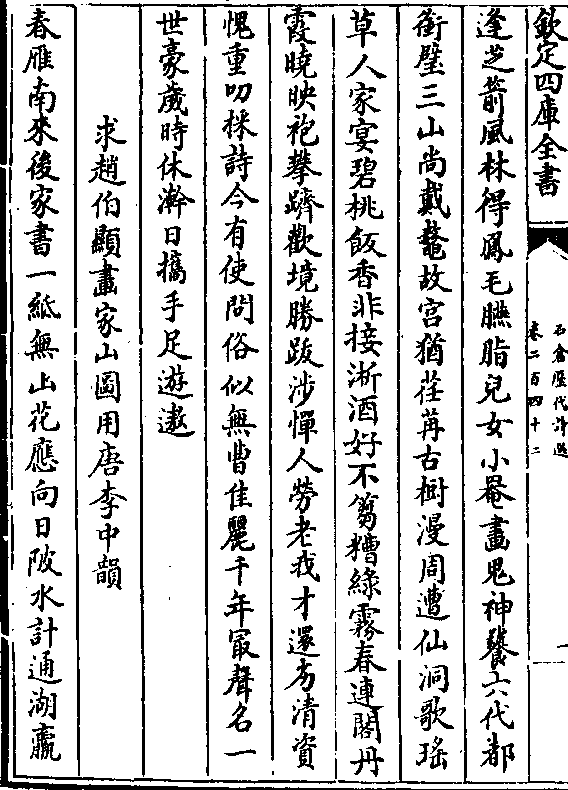 欽定四庫全書
石倉歷代詩選
卷二百四十二
逢芝箭風林得鳳毛臙脂兒女小罨畫鬼神饕六代都
銜璧三山尚戴鼇故宮猶荏苒古樹漫周遭仙洞歌瑤
草人家宴碧桃飯香非接淅酒好不篘糟綠霧春連閣丹
霞曉映袍攀躋歡境勝跋涉憚人勞老我才還劣清資
愧重叨採詩今有使問俗似無曹佳麗千年冣聲名一
世豪歲時休澣日攜手足遊遨
求趙伯顯畫家山圖用唐李中韻
春雁南來後家書一紙無山花應向日陂水計通湖羸